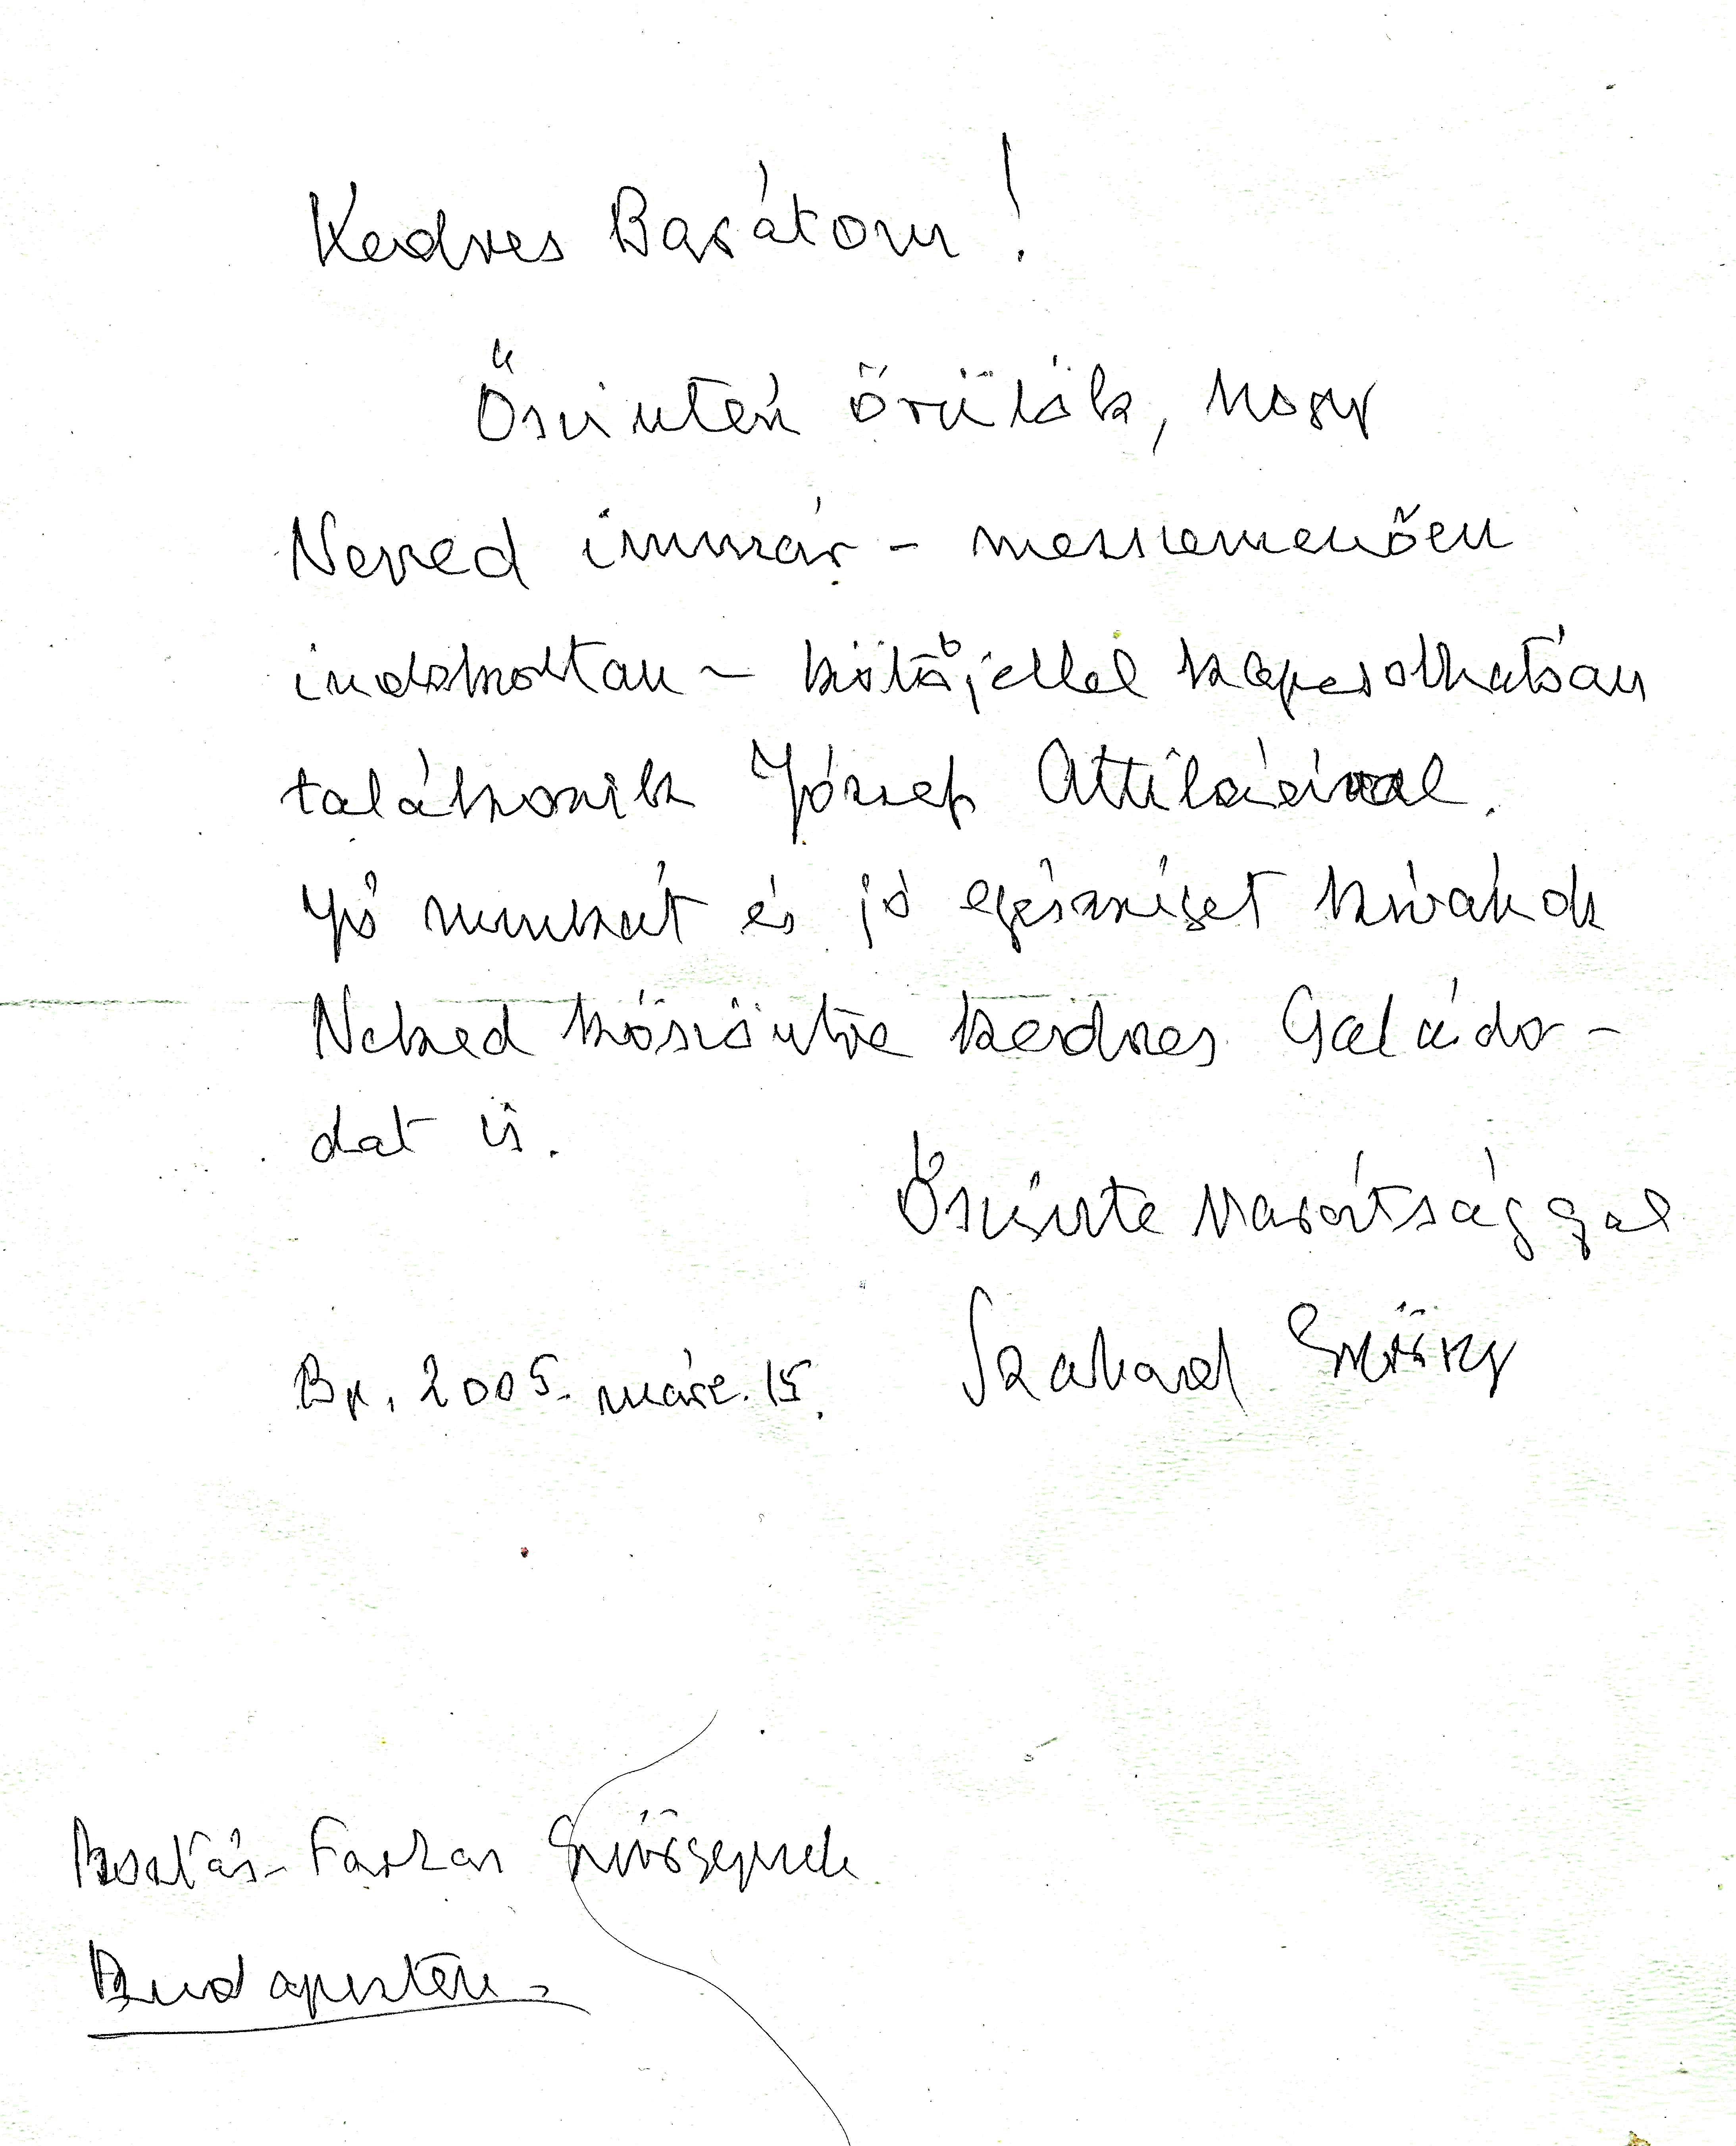 Kedves Barátom!
Őszintén örülök, hogy
Neved immár – messzemenően
indokoltan – kötőjellel kapcsolhatóan
találkozik József Attiláéival.
Jó munkát és jó egészséget kívánok
Neked köszöntve kedves Család-
dat is.
Őszinte barátsággal
Szakard György
Bp. 2005. márc. 15.
Kosztás-Farkas Györgynek
Budapesten